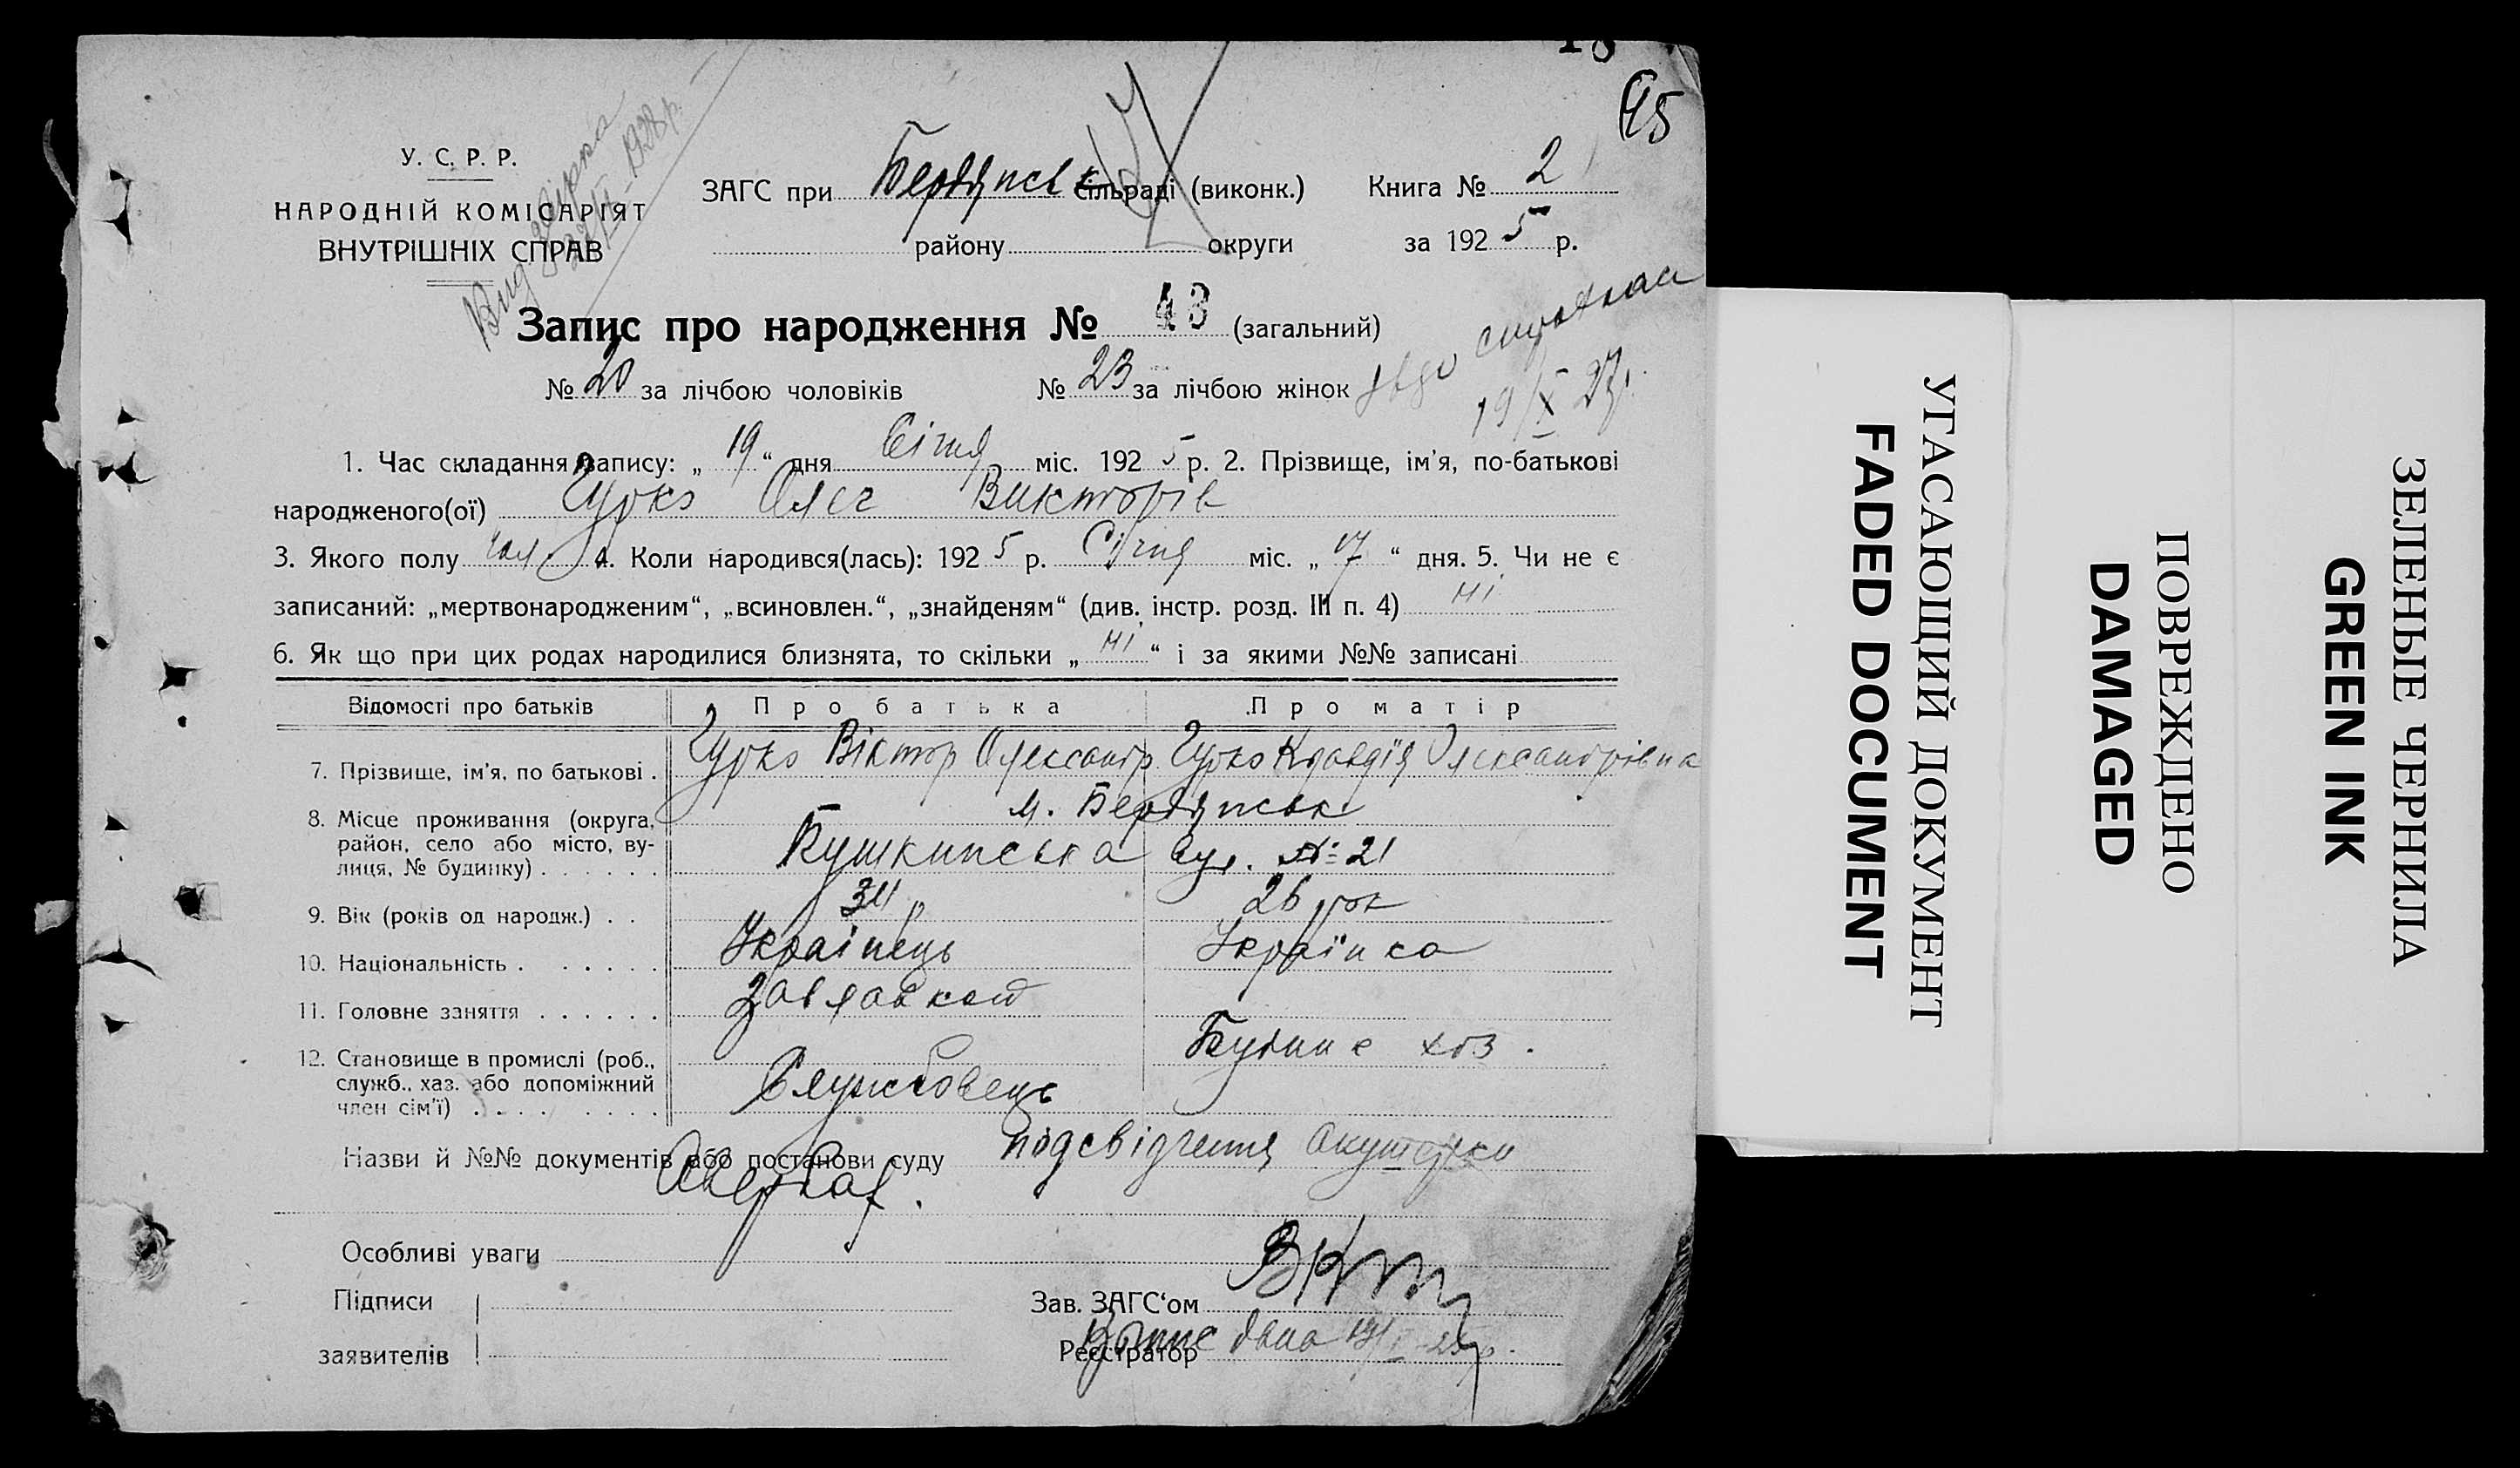 45
У. С. Р. Р.
НАРОДНІЙ КОМІСАРІЯТ
ВНУТРІШНІХ СПРАВ
ЗАГС при Бердянськ сільраді (виконк.) Книга № 2
району округи за 1925 р.
Запис про народження № 43 (загальний)
№ 20 за лічбою чоловіків № 23 за лічбою жінок
19/X 27р.
1. Час складання запису: „19“ дня Січня міс. 1925 р. 2. Прізвище, ім'я, по-батькові
народженого(ої) Гурко Олег Викторів
3. Якого полу чол. 4. Коли народився(лась): 1925 р. Січня міс. „17“ дня. 5. Чи не є
записаний: „мертвонародженим“, „всиновлен.“, „знайденям“ (див. інстр. розд. III п. 4) ні
6. Як що при цих родах народилися близнята, то скільки „ні“ і за якими №№ записані
Відомості про батьків Про батька Про матір
7. Прізвище, ім'я, по батькові . Гурко Віктор Олександр. Гурко Клавдія Олександрівна
8. Місце проживання (округа, район, село або місто, вулиця, № будинку) . . . . . . м. Бердянськ
Пушкинська вул. № 21
9. Вік (років од народж.) . . 34 р 26 рок
10. Національність . . . . . . Українець Українка
11. Головне заняття . . . . . .
12. Становище в промислі (роб., служб., хаз. або допоміжний член сім'ї) . . . . . . . . Службовець
Назви й №№ документів або постанови суду подсвідчення акушорки
Особливі уваги
Підписи
заявителів
Зав. ЗАГС'ом
Реєстратор
УГАСАЮЩИЙ ДОКУМЕНТ
FADED DOCUMENT
ПОВРЕЖДЕНО
DAMAGED
ЗЕЛЕНЫЕ ЧЕРНИЛА
GREEN INK